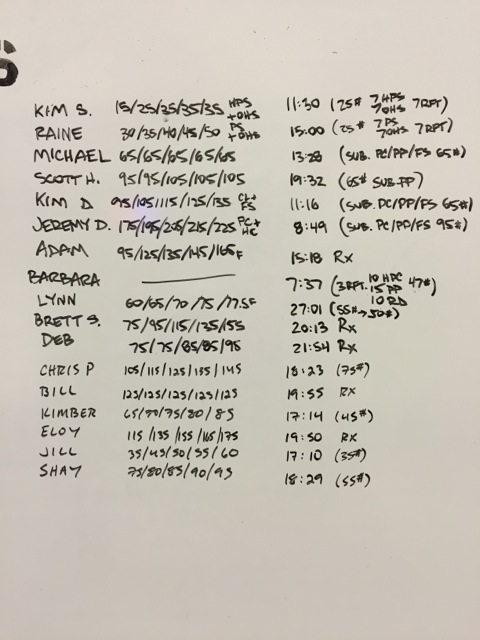 S
KIM S. 15/25/35/35/35 HPS +OHS 11:30 (25# 7HPS 7OHS 7RPT)
RAINE 30/35/40/45/50 PS +OHS 15:00 (25# 7PS 7OHS 7RPT)
MICHAEL 65/65/65/65/65 13:28 (SUB. PC/PP/FS 65#)
SCOTT H. 95/95/105/105/105 19:32 (65# SUB.PP)
KIM D 95/105/115/125/135 CL+ FS 11:16 (SUB. PC/PP/FS 65#)
JEREMY D. 175/195/205/215/225 PC+ HC 8:49 (SUB. PC/PP/FS 95#)
ADAM 95/125/135/145/165F 15:18 Rx
BARBARA 7:37 (3RPT. 10 HPC 15 PP 10 RD 47#)
LYNN 60/65/70/75/77.5F 27:01 (55#→50#)
BRETT S. 75/95/115/135/55 20:13 Rx
DEB 75/75/85/85/95 21:54 Rx
CHRIS P 105/115/125/135/145 18:23 (75#)
BILL 125/125/125/125/125 19:55 RX
KIMBER 65/70/75/80/85 17:14 (45#)
ELOY 115/135/155/165/175 19:50 RX
JILL 35/45/50/55/60 17:10 (35#)
SHAY 75/80/85/90/95 18:29 (55#)